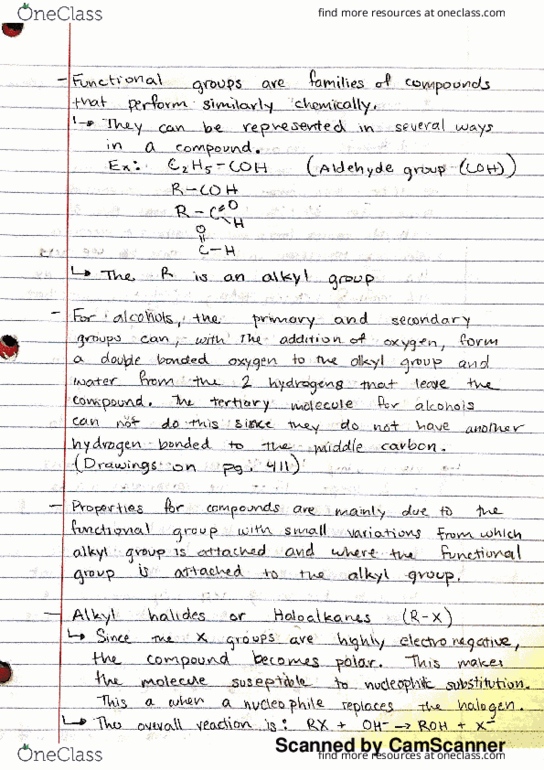 OneClass
find more resources at oneclass.com
- Functional groups are families of compounds
that perform similarly chemically.
↳ They can be represented in several ways
in a compound.
Ex: C2H5-COH (Aldehyde group (COH))
R-COH
R-C=O
H
O
C-H
↳ The R is an alkyl group
- For alcohols, the primary and secondary
groups can, with the addition of oxygen, form
a double bonded oxygen to the alkyl group and
water from the 2 hydrogens that leave the
compound. The tertiary molecule for alcohols
can not do this since they do not have another
hydrogen bonded to the middle carbon.
(Drawings on pg. 411)
- Properties for compounds are mainly due to the
functional group with small variations from which
alkyl group is attached and where the functional
group is attached to the alkyl group.
- Alkyl halides or Haloalkanes (R-X)
↳ Since the X groups are highly electronegative,
the compound becomes polar. This makes
the molecule suseptible to nucleophilic substitution.
This a when a nucleophile replaces the halogen.
↳ The overall reaction is: RX + OH⁻ → ROH + X⁻
Scanned by CamScanner
OneClass
find more resources at oneclass.com